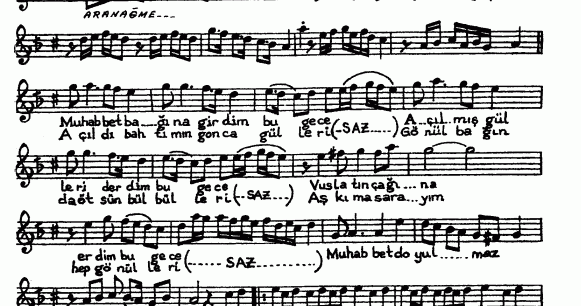 ARANAĞME---
Muhabbet ba....ğına girdim bu gece A...çıl..mış gül
A çıl dı bah tı mın gonca gül le ri (-SAZ.....) Gö nül ba ğın
le ri der dim bu ge ce (-SAZ---) Vusla tın çağı...na
daët sün bül bül le ri (-SAZ....) Aş kı ma sa ra...yım
er dim bu ge ce (------SAZ---------) Muhabbet do yul......maz
hep gö nül le ri